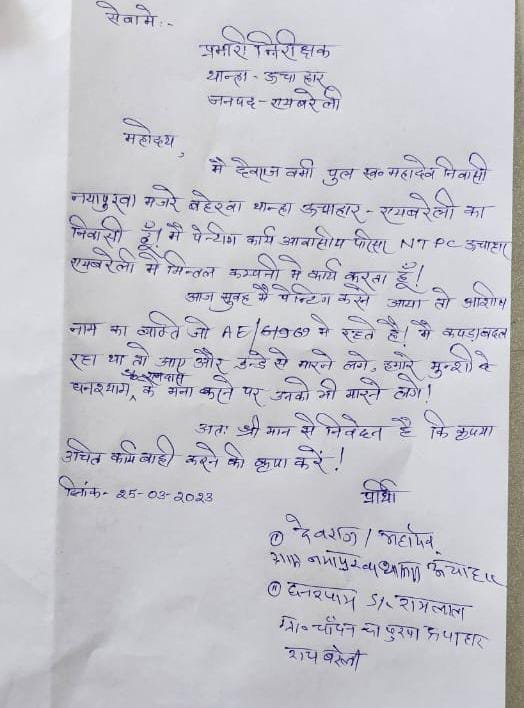 सेवामे:-
प्रभारी निरीक्षक
थान्हा - ऊचाहार
जनपद - रायबरेली
महोदय,
मै देवराज वर्मा पुत्र स्व० महादेव निवासी
नयापुरवा मजरे बहेरवा थान्हा ऊचाहार - रायबरेली का
निवासी हूँ! मै पेन्टींग कार्य आवासीय परिसर NTPC ऊचाहार
रायबरेली मे मित्तल कम्पनी मे कार्य करता हूँ!
आज सुबह मै पेन्टिग करने आया तो आशिष
नाम का व्यक्ति जो AE/ मे रहते है। मै कपड़ा बदल
रहा था तो आए और डन्डे से मारने लगे, हमारे मुन्शी
घनश्याम के मना करने पर उनको भी मारने लगे!
अतः श्री मान से निवेदन है कि कृपया
उचित कार्यवाही करने की कृपा करें!
दिनांक - 25-03-2023
प्रार्थी
① देवराज / महादेव
ग्राम नयापुरवा थाना ऊचाहार
② घनश्याम S/. रामलाल
ग्रा० का पुरवा ऊचाहार
राय बरेली